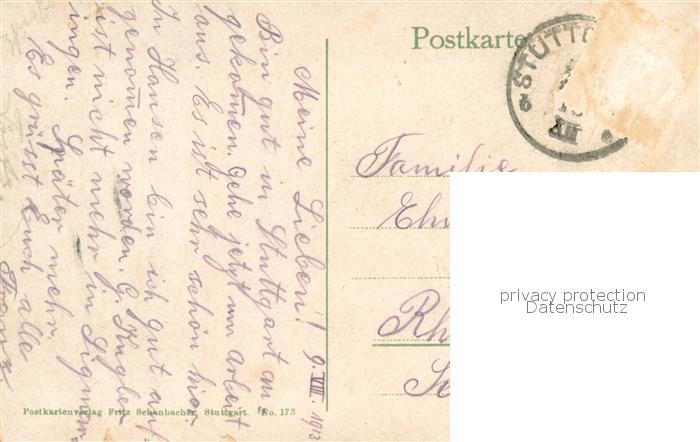 Postkarte
STUTTG
XII
Meine Lieben! 9. VIII. 1913
Bin gut in Stuttgart an-
gekomen. Gehe jetzt um Arbeit
aus. Es ist sehr schön hier.
In Hausen bin ich gut auf-
genomen worden. E. Kugler
ist nicht mehr in Sigmar-
ingen. Später mehr.
Es grüsst Euch alle
Franz
Familie
Eh
Rh
privacy protection
Datenschutz
Postkartenverlag Fritz Schanbacher, Stuttgart. No. 173